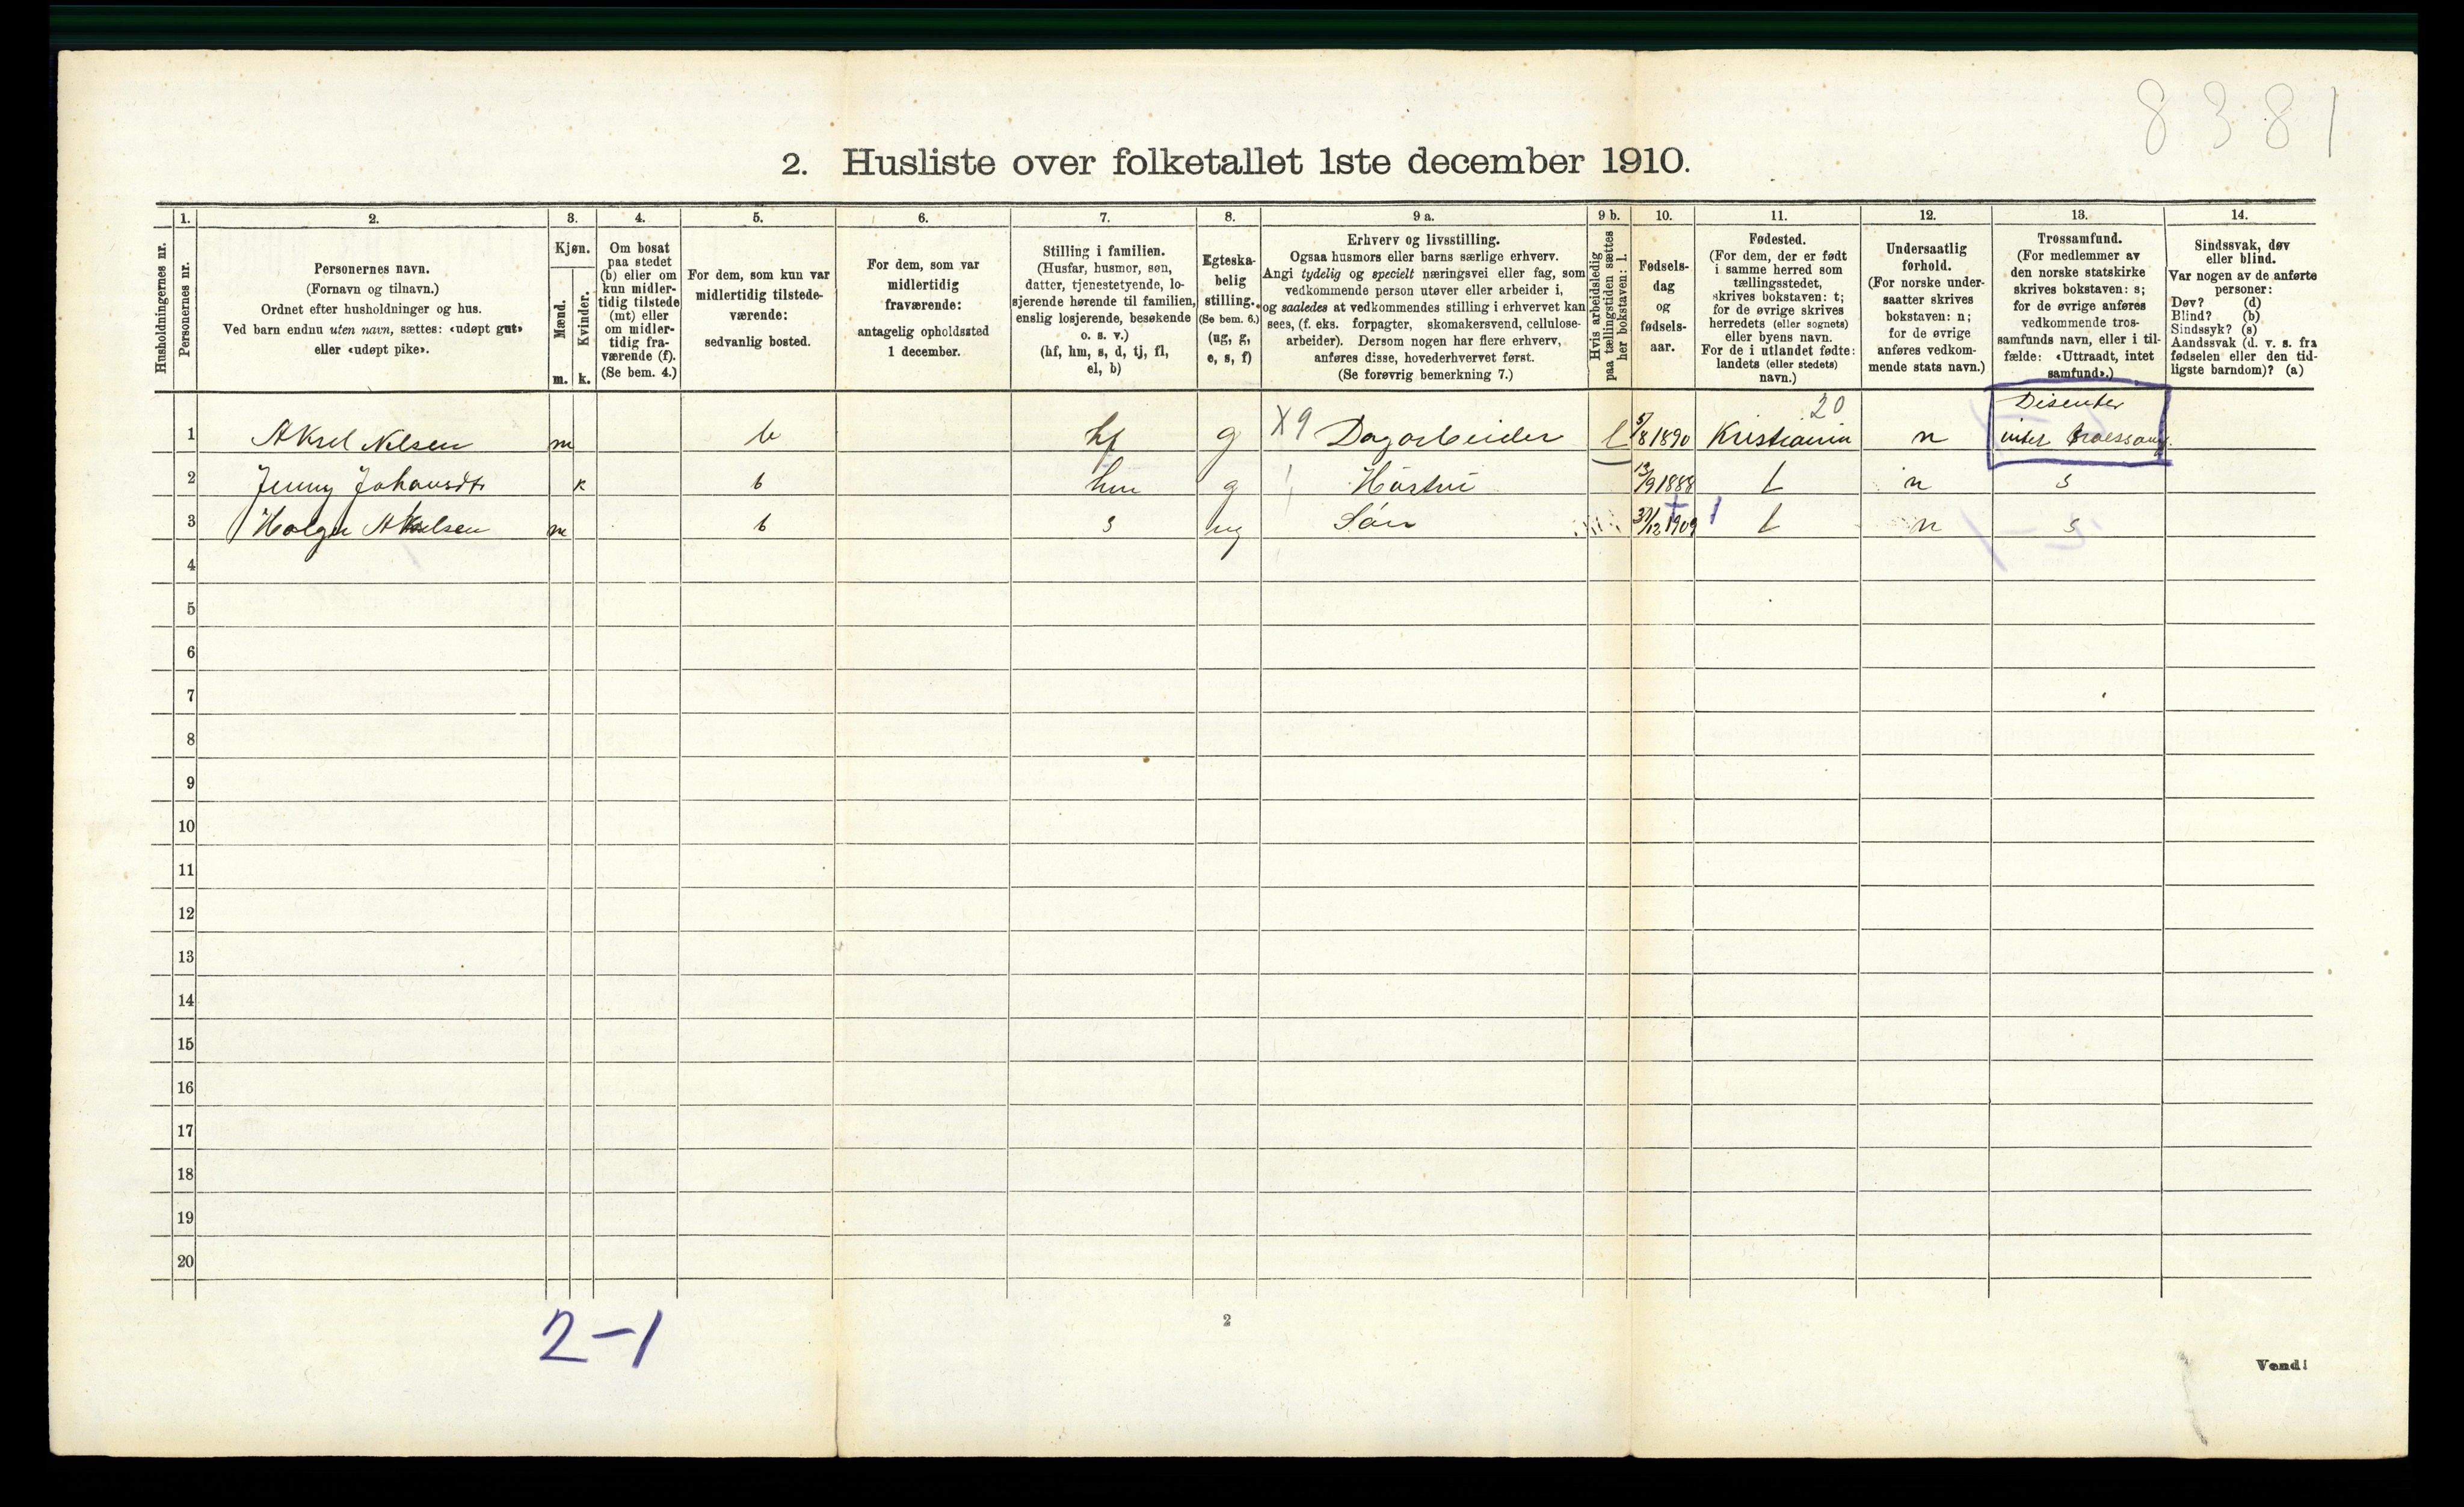 8381
2. Husliste over folketallet 1ste december 1910.
Husholdningernes nr.
1.
Personernes nr.
2.
Personernes navn.
(Fornavn og tilnavn.)
Ordnet efter husholdninger og hus.
Ved barn endnu uten navn, sættes: «udøpt gut»
eller «udøpt pike».
3.
Kjøn.
Mænd.
m.
Kvinder.
k.
4.
Om bosat
paa stedet
(b) eller om
kun midler-
tidig tilstede
(mt) eller
om midler-
tidig fra-
værende (f).
(Se bem. 4.)
5.
For dem, som kun var
midlertidig tilstede-
værende:
sedvanlig bosted.
6.
For dem, som var
midlertidig
fraværende:
antagelig opholdssted
1 december.
7.
Stilling i familien.
(Husfar, husmor, søn,
datter, tjenestetyende, lo-
sjerende hørende til familien,
enslig losjerende, besøkende
o. s. v.)
(hf, hm, s, d, tj, fl,
el, b)
8.
Egteska-
belig
stilling.
(Se bem. 6.)
(ug, g,
e, s, f)
9 a.
Erhverv og livsstilling.
Ogsaa husmors eller barns særlige erhverv.
Angi tydelig og specielt næringsvei eller fag, som
vedkommende person utøver eller arbeider i,
og saaledes at vedkommendes stilling i erhvervet kan
sees, (f. eks. forpagter, skomakersvend, cellulose-
arbeider). Dersom nogen har flere erhverv,
anføres disse, hovederhvervet først.
(Se forøvrig bemerkning 7.)
9 b.
Hvis arbeidsledig
paa tællingstiden sættes
her bokstaven: l.
10.
Fødsels-
dag
og
fødsels-
aar.
11.
Fødested.
(For dem, der er født
i samme herred som
tællingsstedet,
skrives bokstaven: t;
for de øvrige skrives
herredets (eller sognets)
eller byens navn.
For de i utlandet fødte:
landets (eller stedets)
navn.)
12.
Undersaatlig
forhold.
(For norske under-
saatter skrives
bokstaven: n;
for de øvrige
anføres vedkom-
mende stats navn.)
13.
Trossamfund.
(For medlemmer av
den norske statskirke
skrives bokstaven: s;
for de øvrige anføres
vedkommende tros-
samfunds navn, eller i til-
fælde: «Uttraadt, intet
samfund».)
14.
Sindssvak, døv
eller blind.
Var nogen av de anførte
personer:
Døv? (d)
Blind? (b)
Sindssyk? (s)
Aandssvak (d. v. s. fra
fødselen eller den tid-
ligste barndom)? (a)
20 Disenter
1 Aksel Nilsen m b hf g X9 Dagarbeider l 5/8 1890 Kristiania n
2 Jenny Johansdt. k b hm g Hustru 13/9 1888 t n s
3 Holger Akselsen m b s ug Sön 31/12 1909 1 t n s
4
5
6
7
8
9
10
11
12
13
14
15
16
17
18
19
20
2-1
2
Vend!